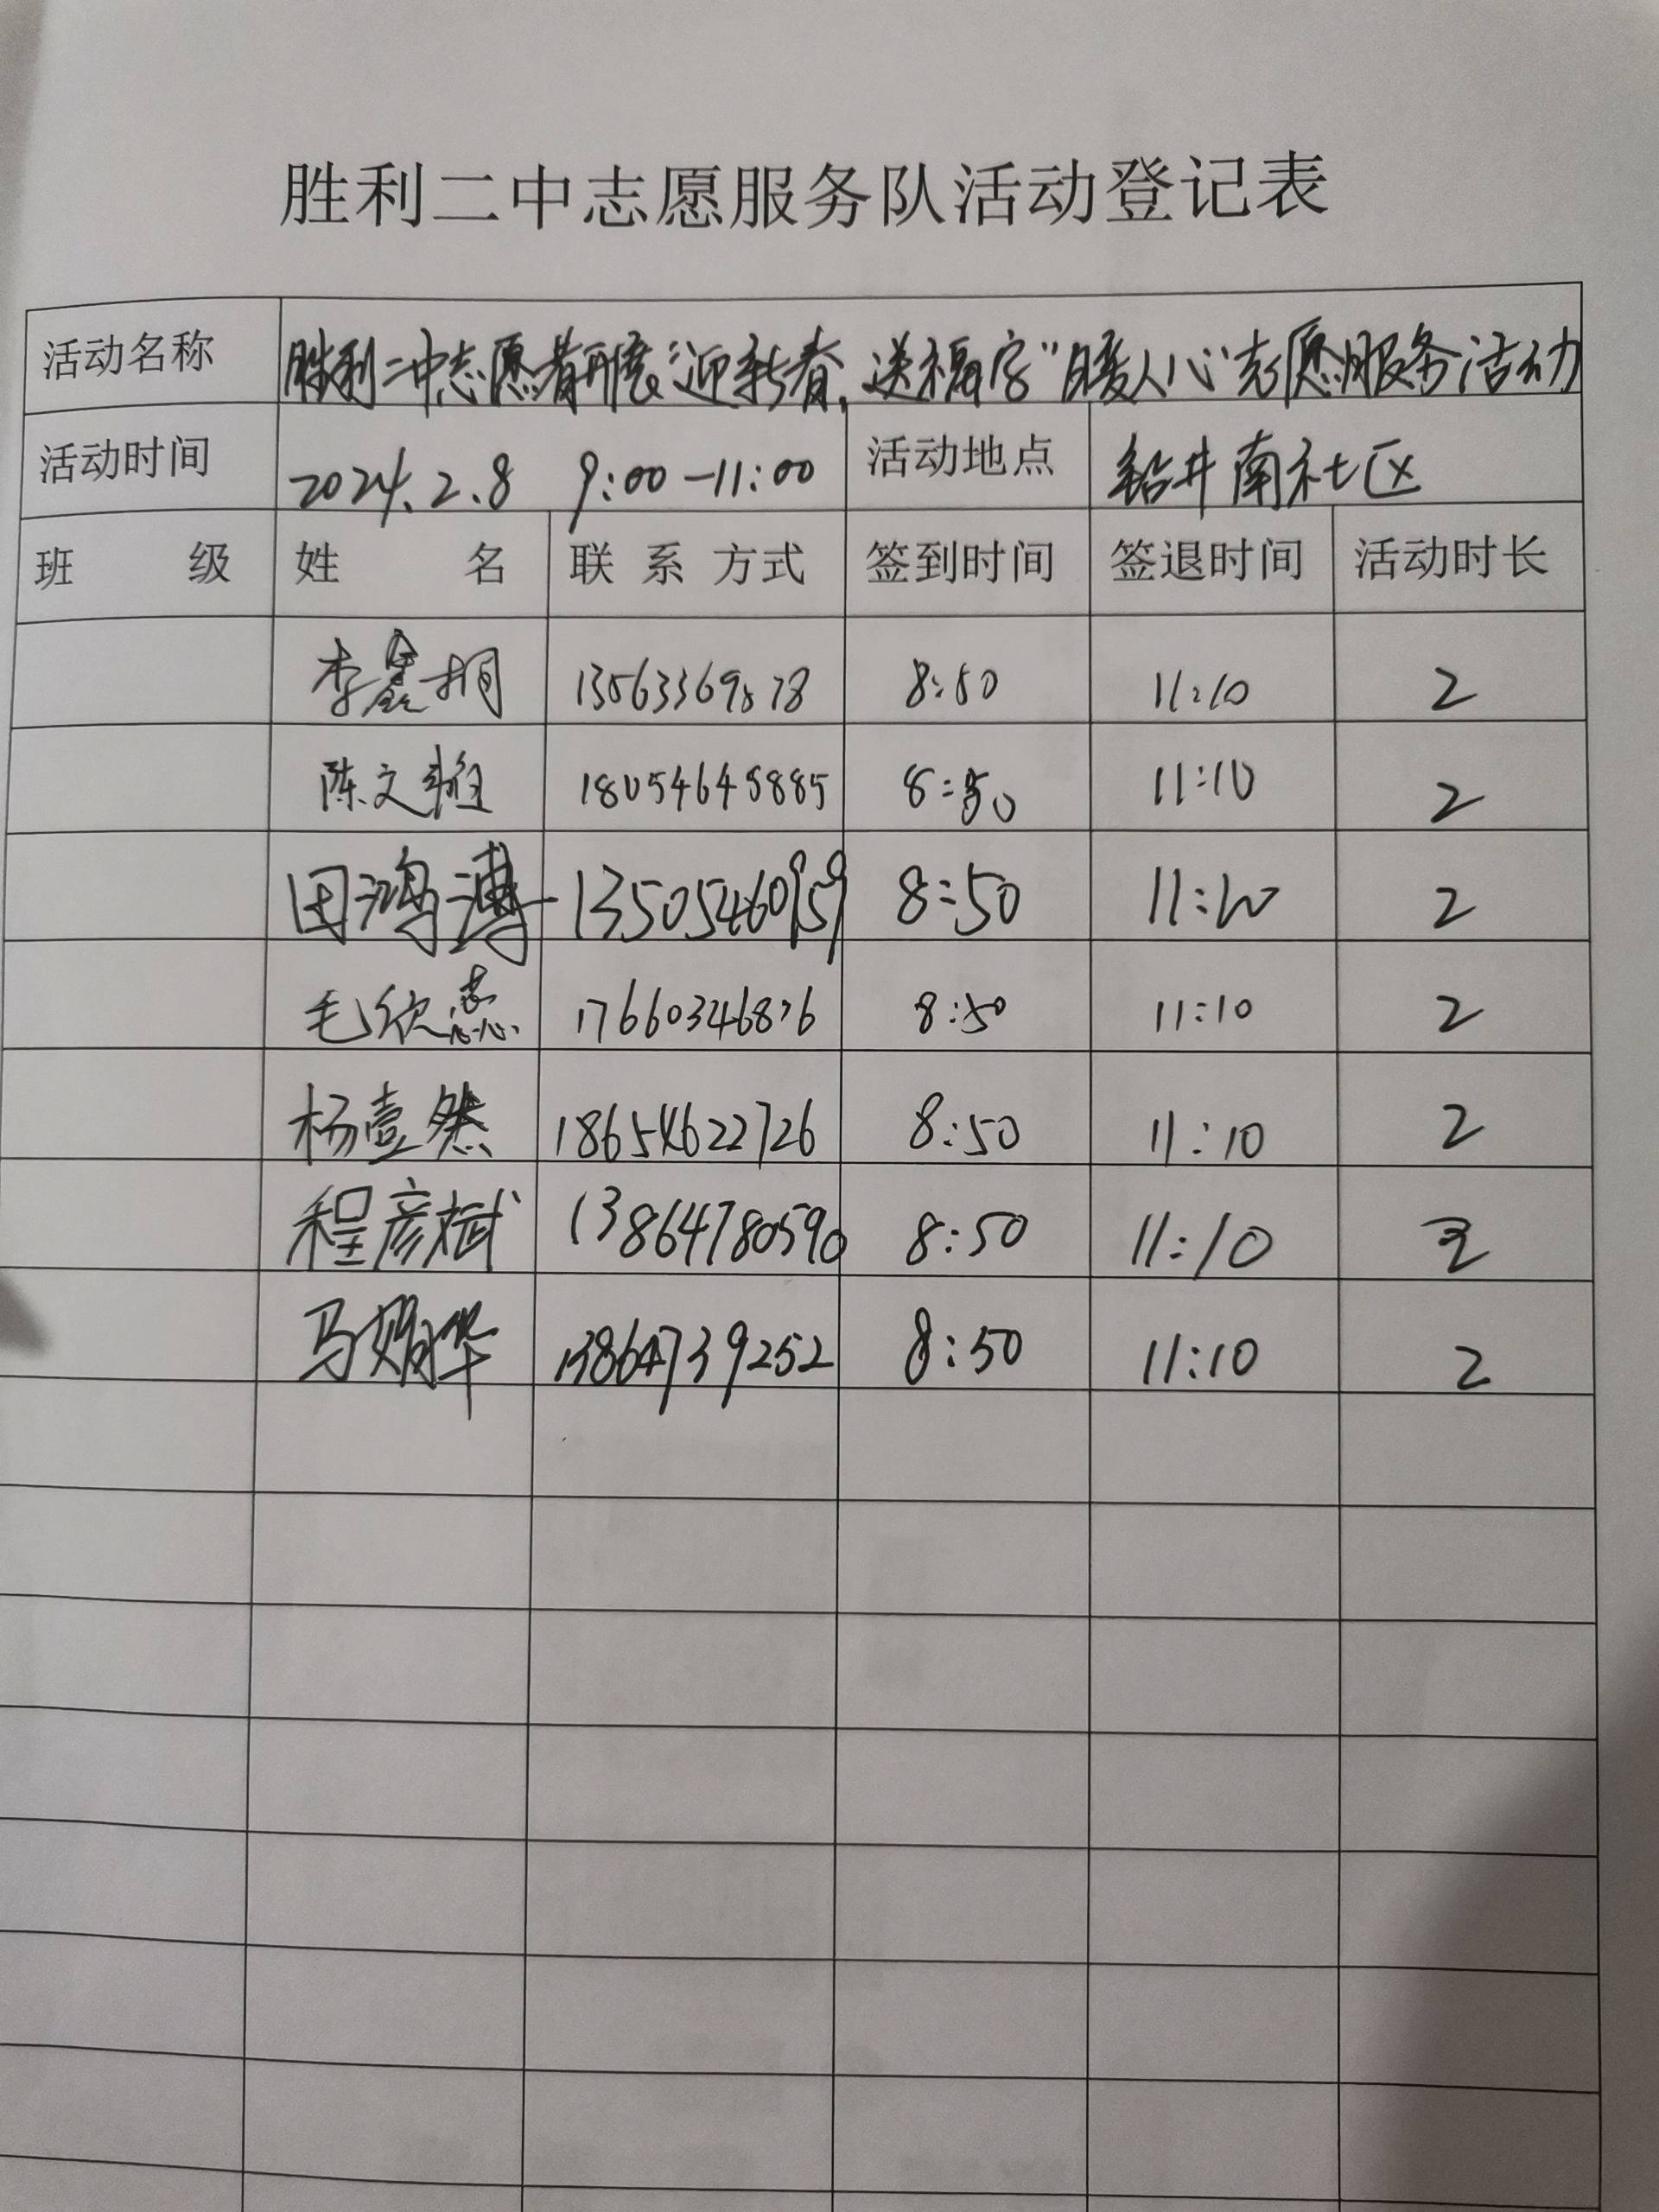 胜利二中志愿服务队活动登记表
活动名称 胜利二中志愿者开展“迎新春,送福字”暖人心”志愿服务活动
活动时间 2024.2.8 9:00-11:00 活动地点 钻井南社区
班 级 姓 名 联系方式 签到时间 签退时间 活动时长
李鑫桐 8:50 11:10 2
陈文 18054645885 8:50 11:10 2
田鸿溥 13505460959 8:50 2
毛欣蕊 17660346876 8:50 11:10 2
杨壹然 18654622726 8:50 11:10 2
程彦斌 13864780590 8:50 11:10 2
马娟华 13864739252 8:50 11:10 2